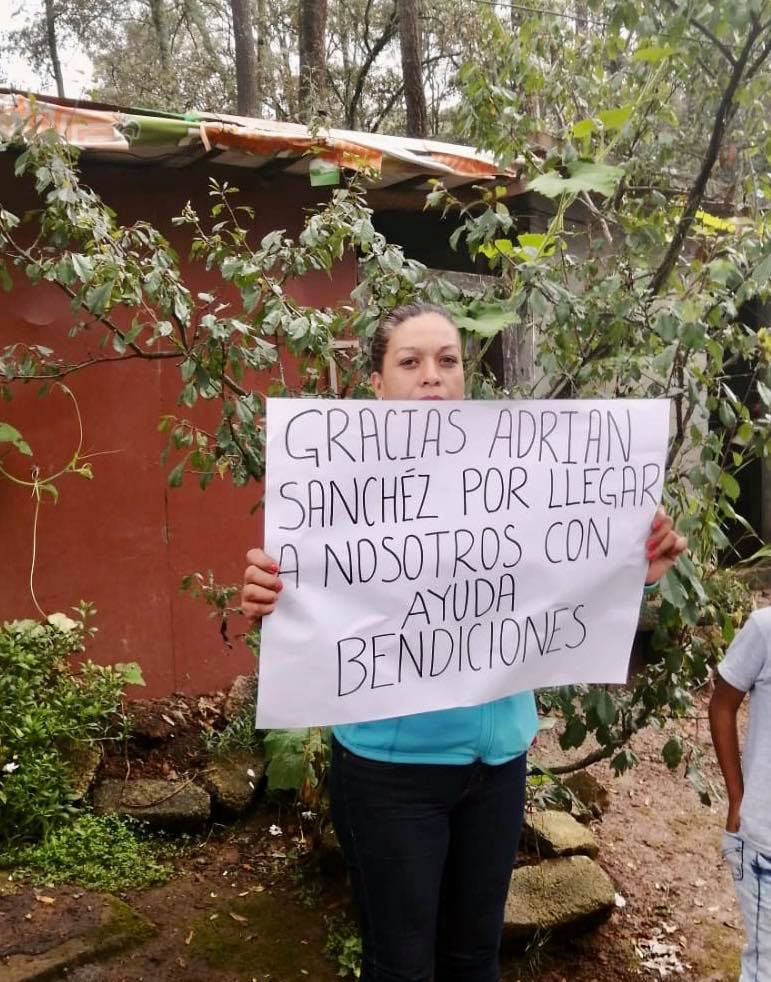 GRACIAS ADRIAN
SANCHÉZ POR LLEGAR
A NOSOTROS CON
AYUDA
BENDICIONES